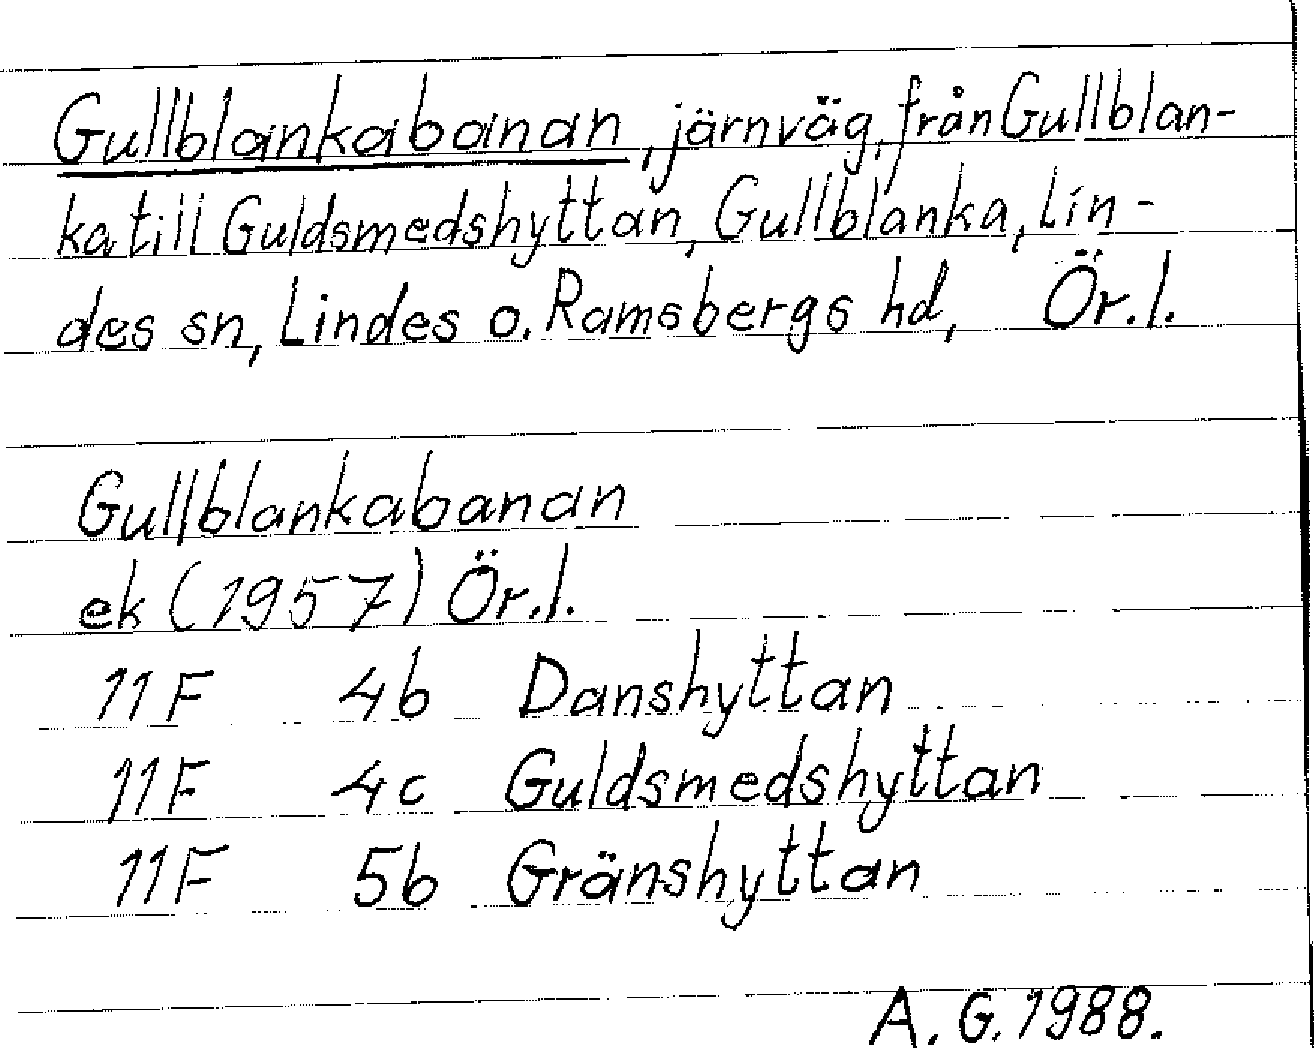 Gullblankabanan, järnväg, från Gullblan-
ka till Guldsmedshyttan, Gullblanka, Lin-
des sn, Lindes o. Ramsbergs hd, Ör. l.
Gullblankabanan
ek (1957) Ör. l.
11F 4b Danshyttan
11F 4c Guldsmedshyttan
11F 5b Gränshyttan
A. G. 1988.